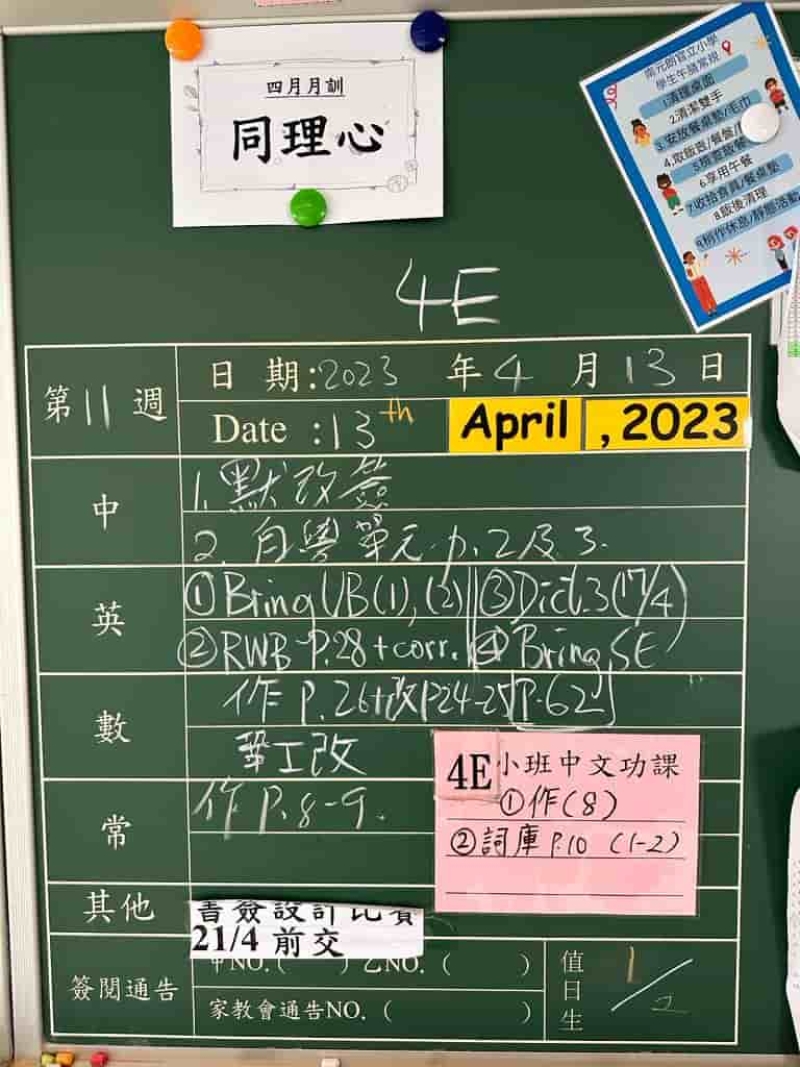 四月月訓
同理心
南元朗官立小學
學生午膳常規
1.清理桌面
2.清潔雙手
3.安放餐桌墊/毛巾
4.取飯壺/餐盤/
6.享用午餐
7.收拾食具/餐桌墊
8.飯後清理
9.稍作休息/靜態活動
4E
第11週
日 期:2023 年 4 月 13 日
Date :13th April , 2023
中
1. 默改簽
2. 自學單元 p. 2及3.
英
①Bring UB(1), (2) ③Dict.3(17/4)
②RWB P.28 + corr. ④Bring SE
數
作 P.26+改P24-25 P.62
工改
常
作 P.8-9.
4E 小班中文功課
①作(8)
②詞庫 P.10 (1-2)
其他
書簽設計比賽
21/4 前交
簽閱通告
甲NO.( ) 乙NO. ( )
家教會通告NO. ( )
值日生
1/2